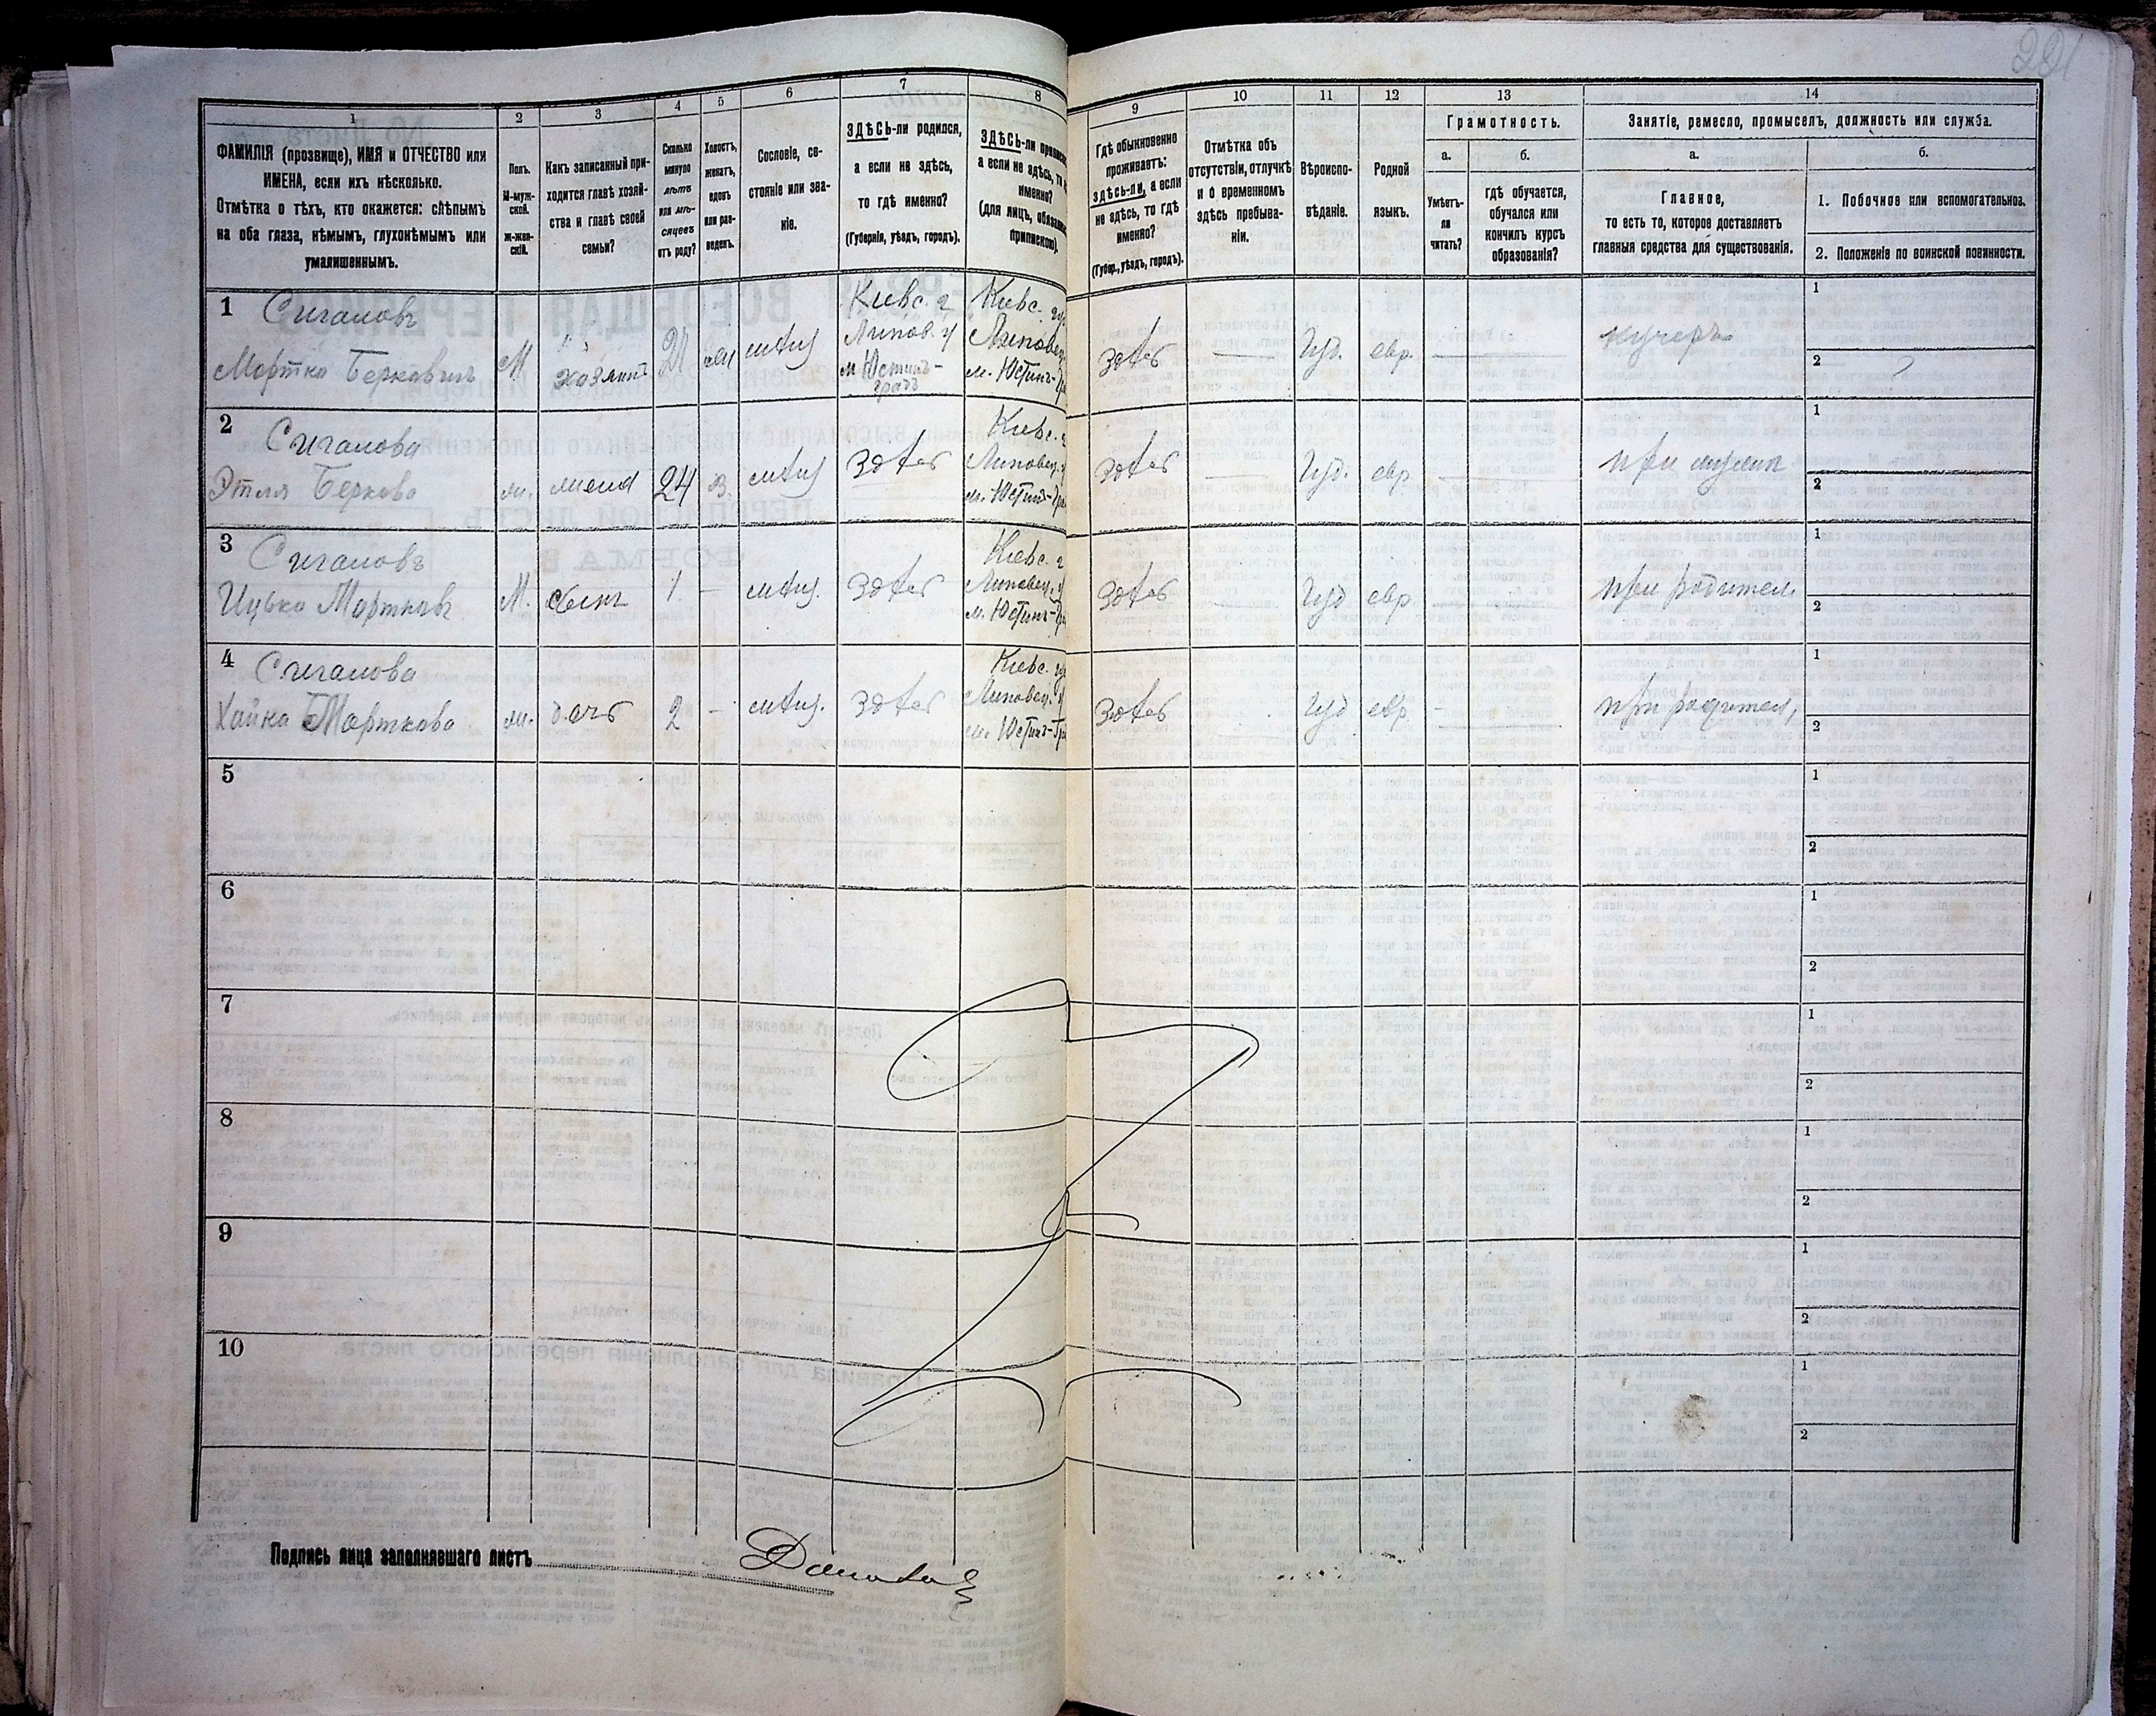 291
1
2
3
4
5
6
7
8
9
10
11
12
13
14
ФАМИЛІЯ (прозвище), ИМЯ и ОТЧЕСТВО или
ИМЕНА, если ихъ нѣсколько.
Отмѣтка о тѣхъ, кто окажется: слѣпымъ
на оба глаза, нѣмымъ, глухонѣмымъ или
умалишеннымъ.
Полъ.
М-муж-
ской.
Ж-жен-
скій.
Какъ записанный при-
ходится главѣ хозяй-
ства и главѣ своей
семьи?
Сколько
минуло
лѣтъ
или мѣ-
сяцевъ
отъ роду?
Холостъ,
женатъ,
вдовъ
или раз-
веденъ.
Сословіе, со-
стояніе или зва-
ніе.
ЗДѢСЬ-ли родился,
а если не здѣсь,
то гдѣ именно?
(Губернія, уѣздъ, городъ).
ЗДѢСЬ-ли
а если не здѣсь, то
именно?
(для лицъ,
припискою).
Гдѣ обыкновенно
проживаетъ:
здѣсь-ли, а если
не здѣсь, то гдѣ
именно?
(Губер., уѣздъ, городъ).
Отмѣтка объ
отсутствіи, отлучкѣ
и о временномъ
здѣсь пребыва-
ніи.
Вѣроиспо-
вѣданіе.
Родной
языкъ.
Грамотность.
а.
б.
Умѣетъ-
ли
читать?
Гдѣ обучается,
обучался или
кончилъ курсъ
образованія?
Занятіе, ремесло, промыселъ, должность или служба.
а.
б.
Главное,
то есть то, которое доставляетъ
главныя средства для существованія.
1. Побочное или вспомогательное.
2. Положеніе по воинской повинности.
1 Сигаловъ
Мортко Берковичъ М хозяинъ мѣщ Кіевс. г Липов. у м Юстинъ-градъ Кіевс. м. Юстинъ- здѣсь Іуд. евр. кучеръ
1
2
2 Сигалова
Этля Беркова ж. жена 24 з. мѣщ здѣсь Кіевс. Липовец. м. Юстинъ- здѣсь Іуд. евр. при мужѣ
1
2
3 Сигаловъ
Ицько Мортковъ М. сынъ 1 - мѣщ. здѣсь Кіевс. Липовец. м. Юстинъ- здѣсь Іуд евр при родител.
1
2
4 Сигалова
Хайка Морткова ж. дочь 2 - мѣщ. здѣсь Кіевс. Липовец. м. Юстинъ- здѣсь Іуд евр. при родител,
1
2
5
1
2
6
1
2
7
1
2
8
1
2
9
1
2
10
1
2
Подпись лица заполнявшаго листъ